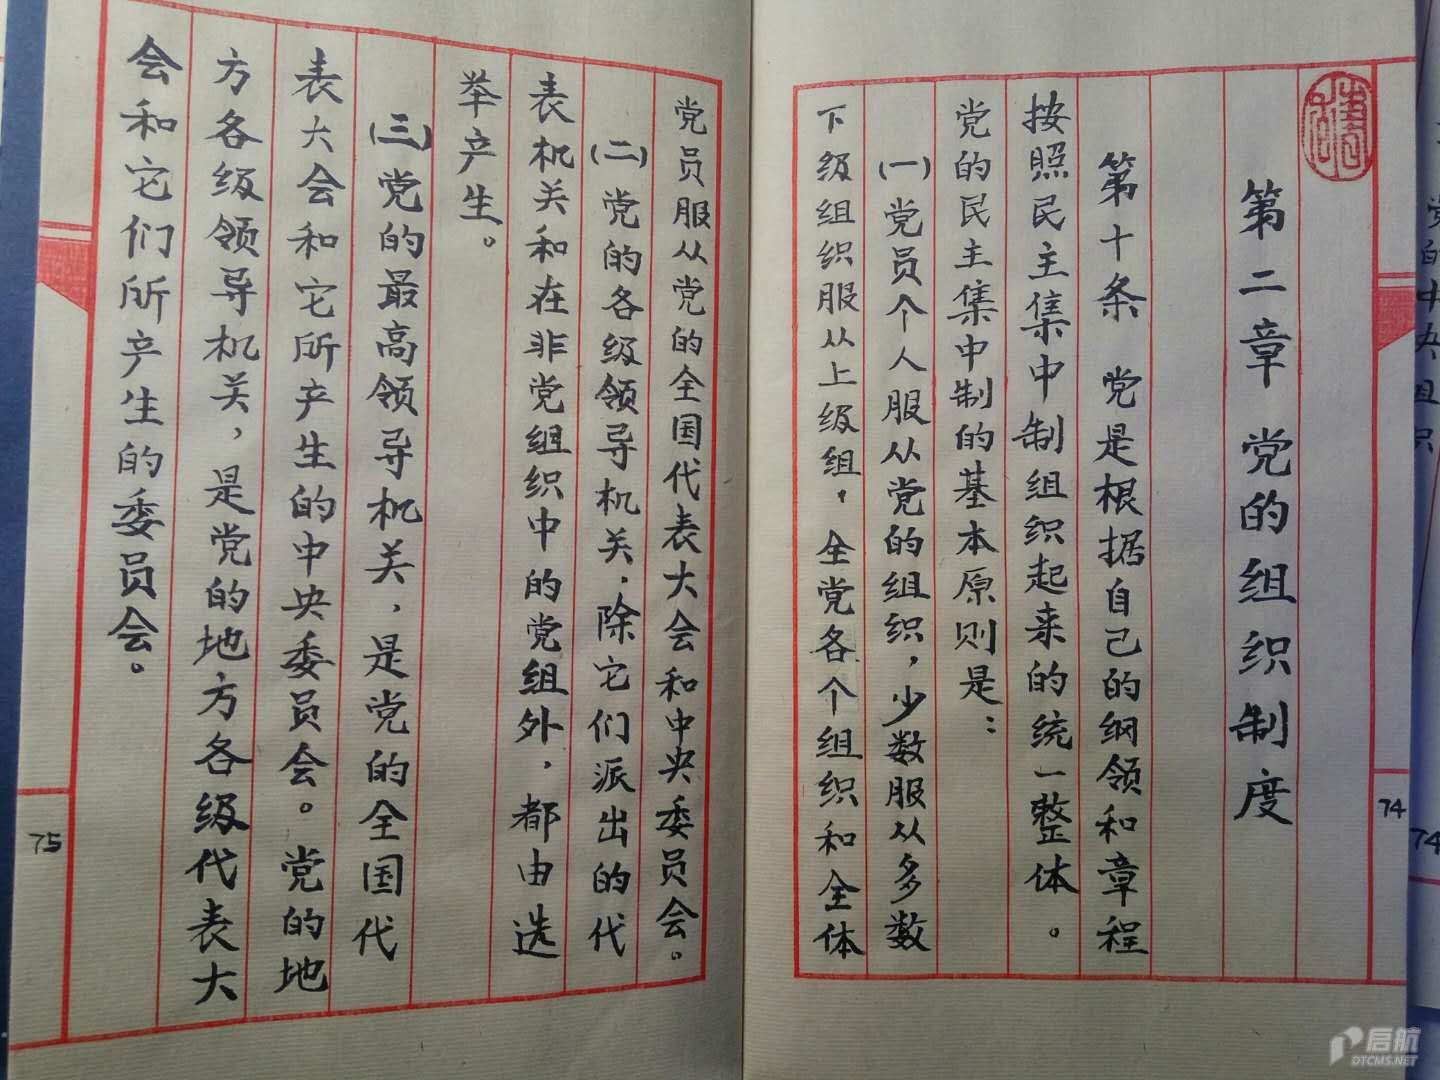 第二章 党的组织制度
第十条 党是根据自己的纲领和章程
按照民主集中制组织起来的统一整体。
党的民主集中制的基本原则是：
(一)党员个人服从党的组织，少数服从多数
下级组织服从上级组，全党各个组织和全体
74
党员服从党的全国代表大会和中央委员会。
(二)党的各级领导机关，除它们派出的代
表机关和在非党组织中的党组外，都由选
举产生。
(三)党的最高领导机关，是党的全国代
表大会和它所产生的中央委员会。党的地
方各级领导机关，是党的地方各级代表大
会和它们所产生的委员会。
75
党的中央组织
74
启航
DTCMS.NET